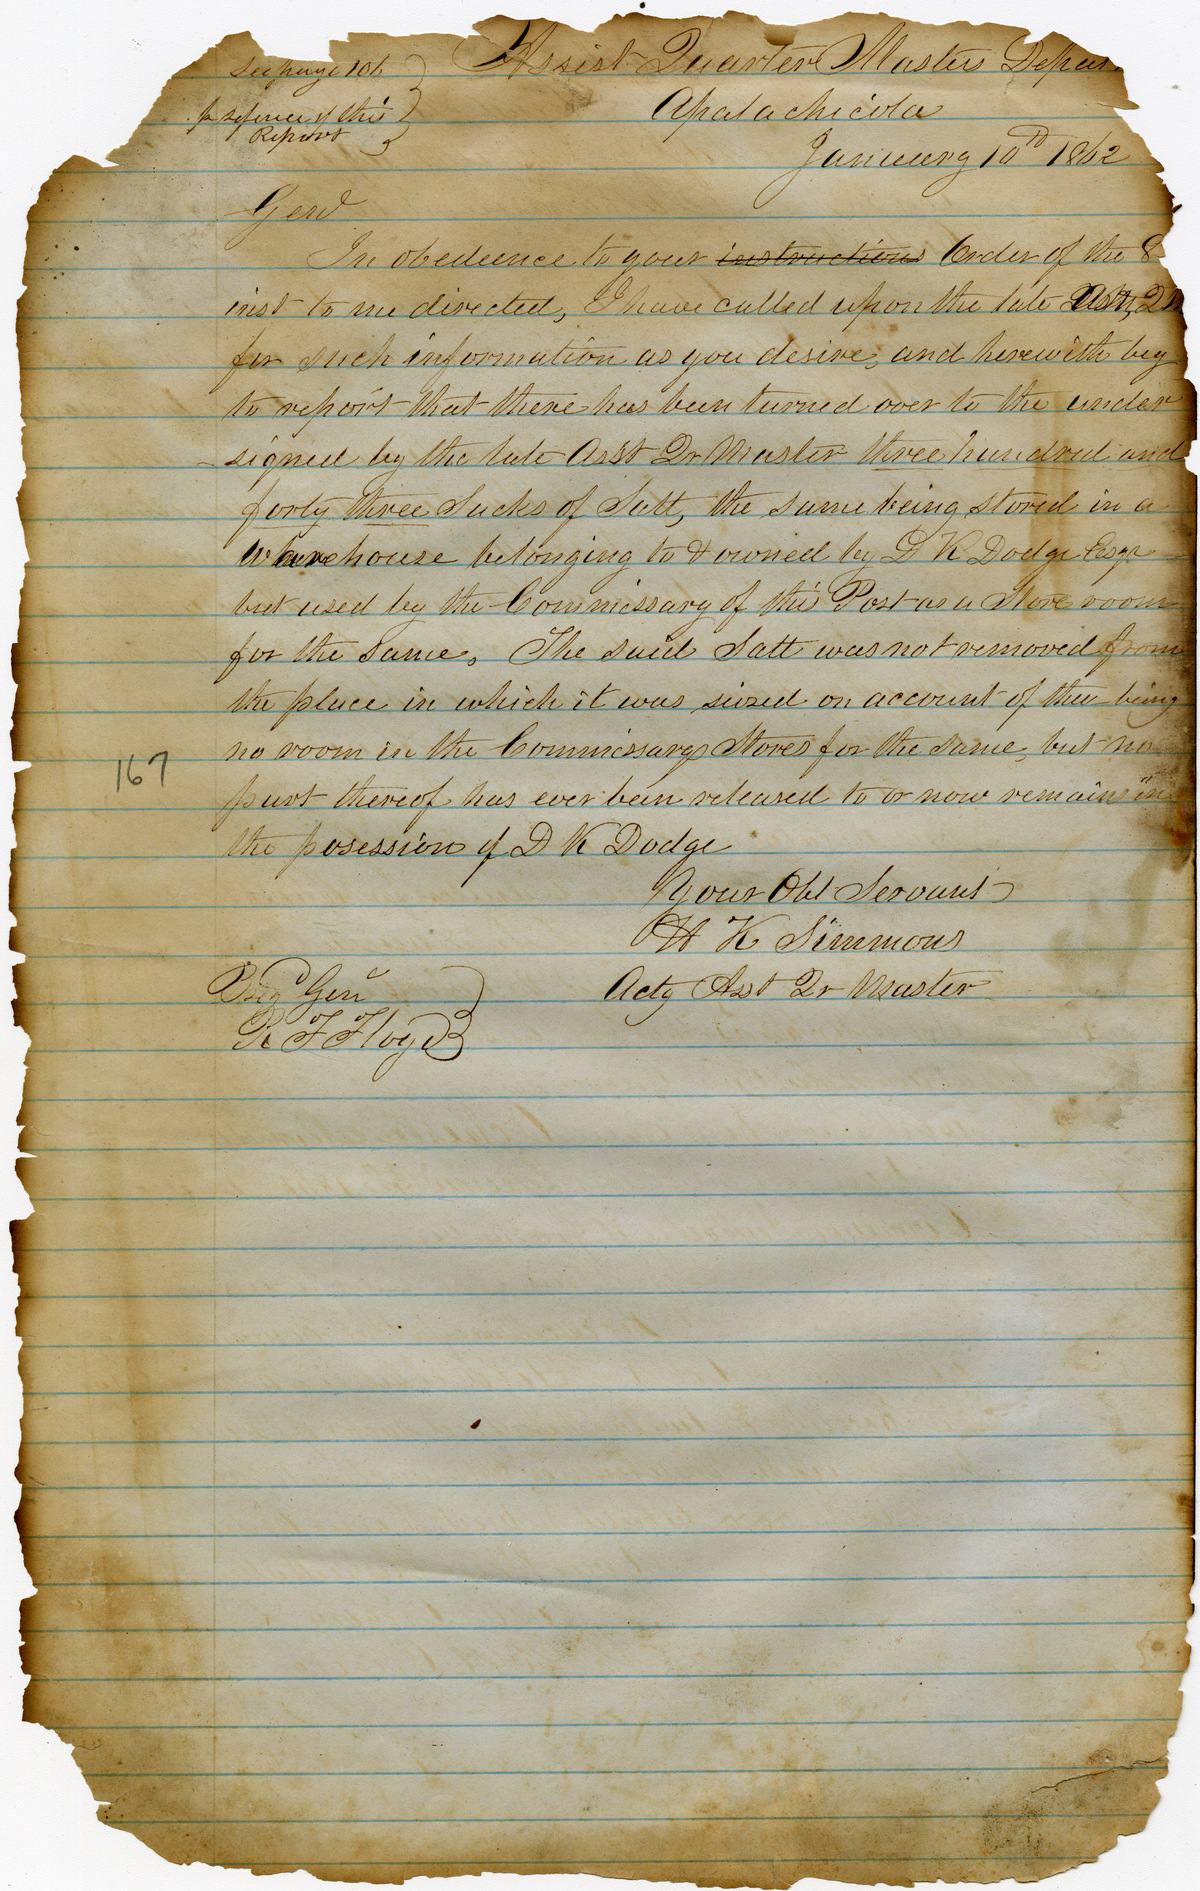 See page 106
for reference of this
Report
Assist Quarter Master Depar
Apalachicola
January 10th 1862
Genl
In obedience to your instructions Order of the 8
inst to me directed, I have called upon the late Asst, Q M
for such information as you desire, and herewith beg
to report that there has been turned over to the under
signed by the late Asst Qr Master three hundred and
forty three Sacks of Salt, the same being stored in a
Warehouse belonging to & owned by D K Dodge Esqr
but used by the Commissary of this Post as a Store room
for the same, The said Salt was not removed from
the place in which it was siezed on account of their being
no room in the Commissary Stores for the same, but no
part thereof has ever been released to or now remains in
the posession of D K Dodge
167
Your Obt Servant
H K Simmons
Actg Asst Qr Master
Brig Gen
R F Floyd